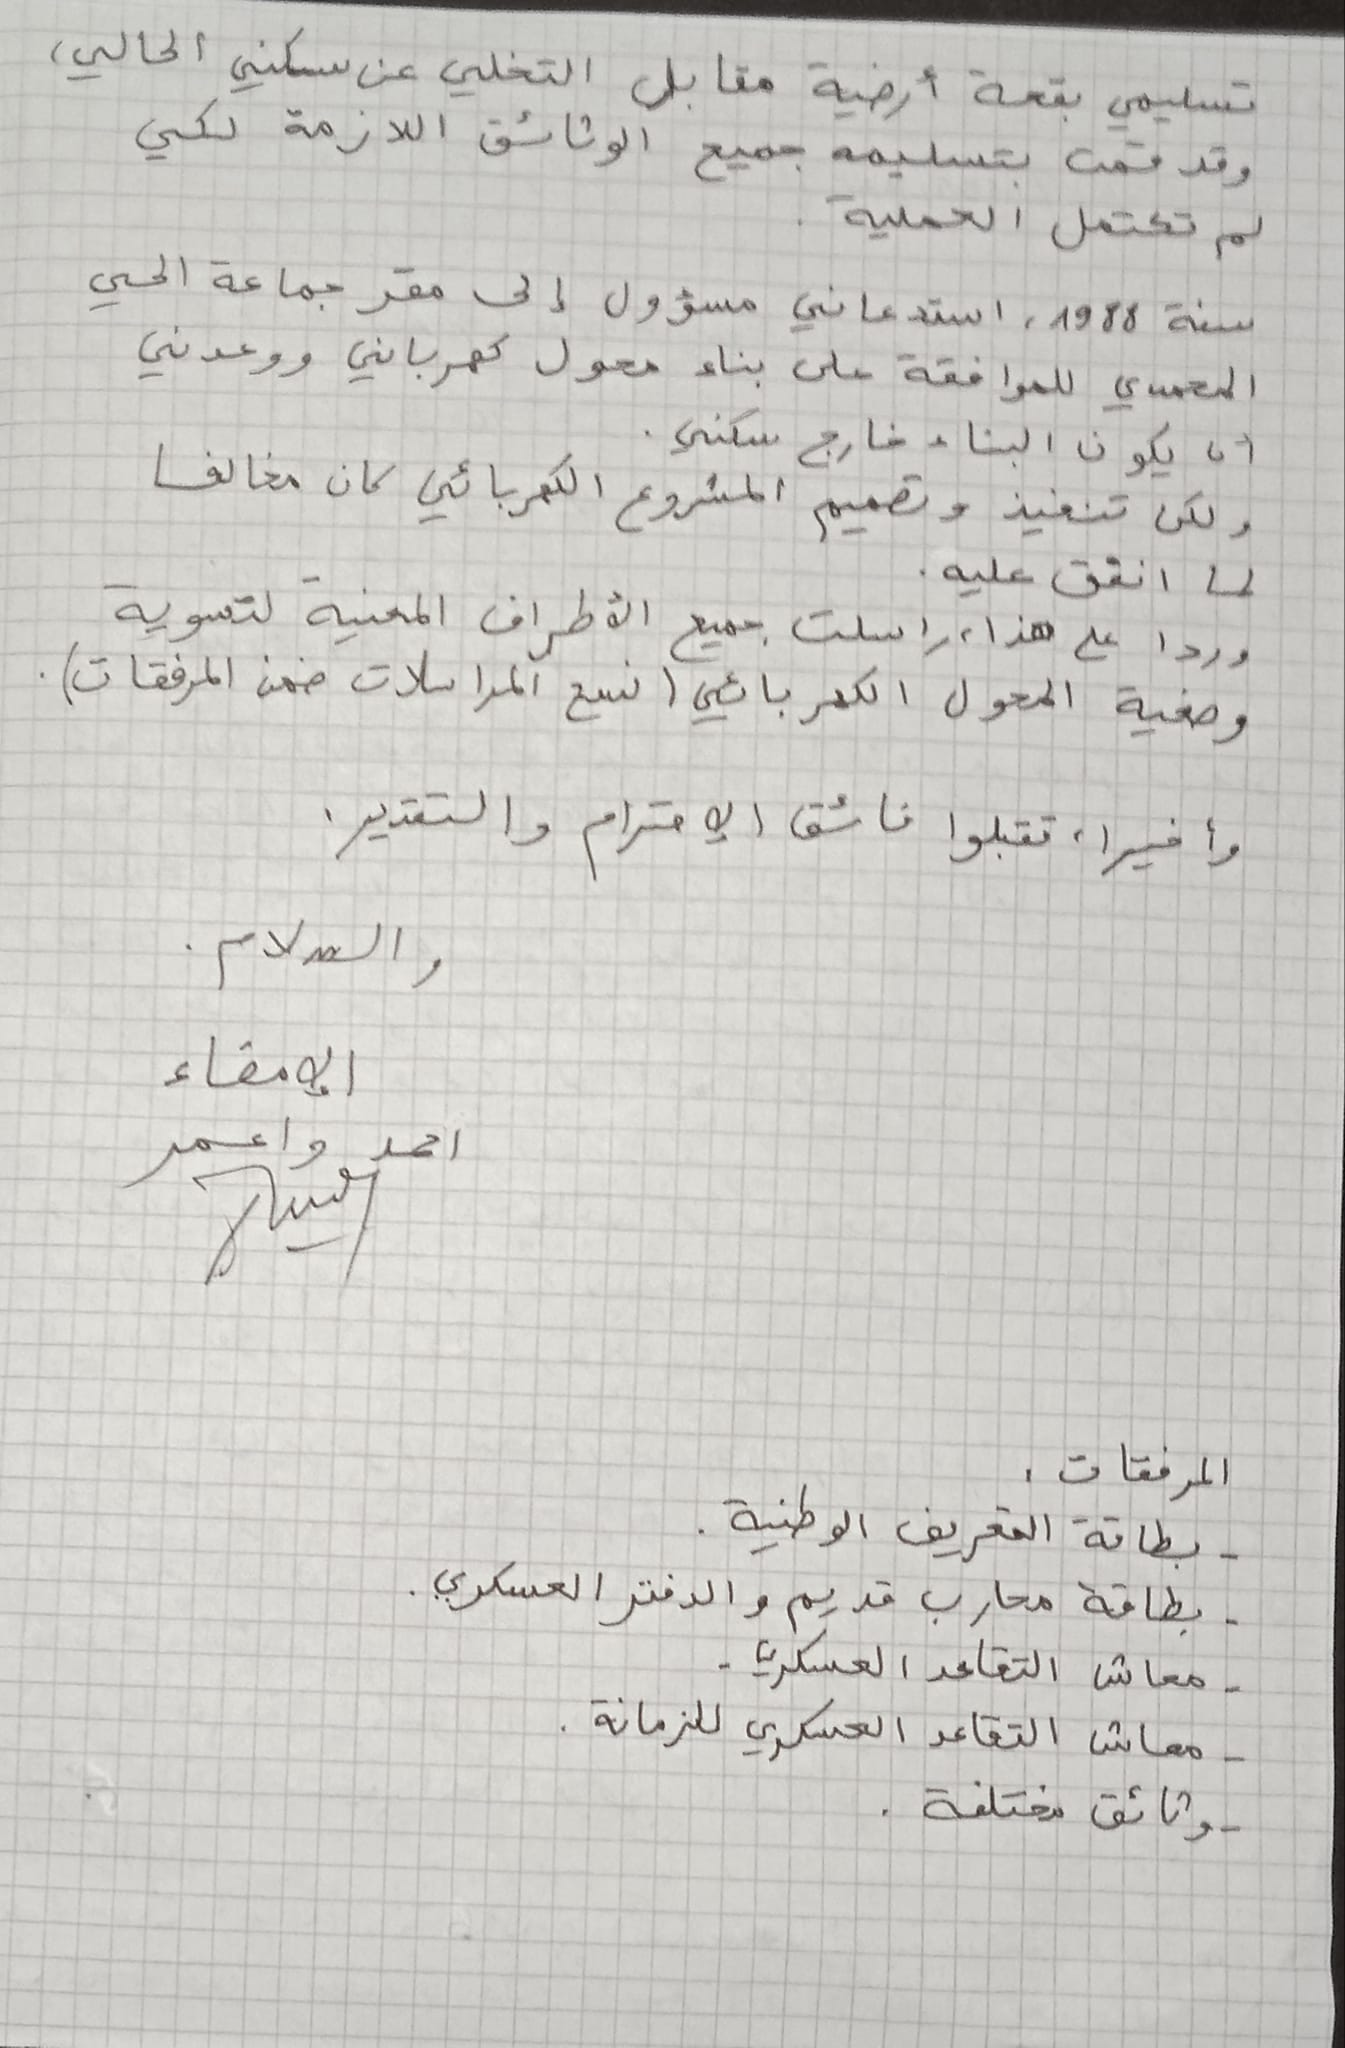 تسليمي بقعة أرضية مقابل التخلي عن سكني الحالي،
وقد قمت بتسليمه جميع الوثائق اللازمة لكي
لم تكتمل العملية.
سنة 1988، استدعاني مسؤول إلى مقر جماعة الحي
المحمدي للموافقة على بناء محول كهربائي ووعدني
أن يكون البناء خارج سكني.
ولكن تنفيذ وتصميم المشروع الكهربائي كان مخالفا
لما اتفق عليه.
وردا على هذا، راسلت جميع الأطراف المعنية لتسوية
وضعية المحول الكهربائي (نسخ المراسلات ضمن المرفقات).
وأخيرا، تقبلوا فائق الاحترام والتقدير.
والسلام.
الإمضاء
احمد واعمر
المرفقات.
- بطاقة التعريف الوطنية.
- بطاقة محارب قديم والدفتر العسكري.
- معاش التقاعد العسكري.
- معاش التقاعد العسكري للزمانة.
- وثائق مختلفة.